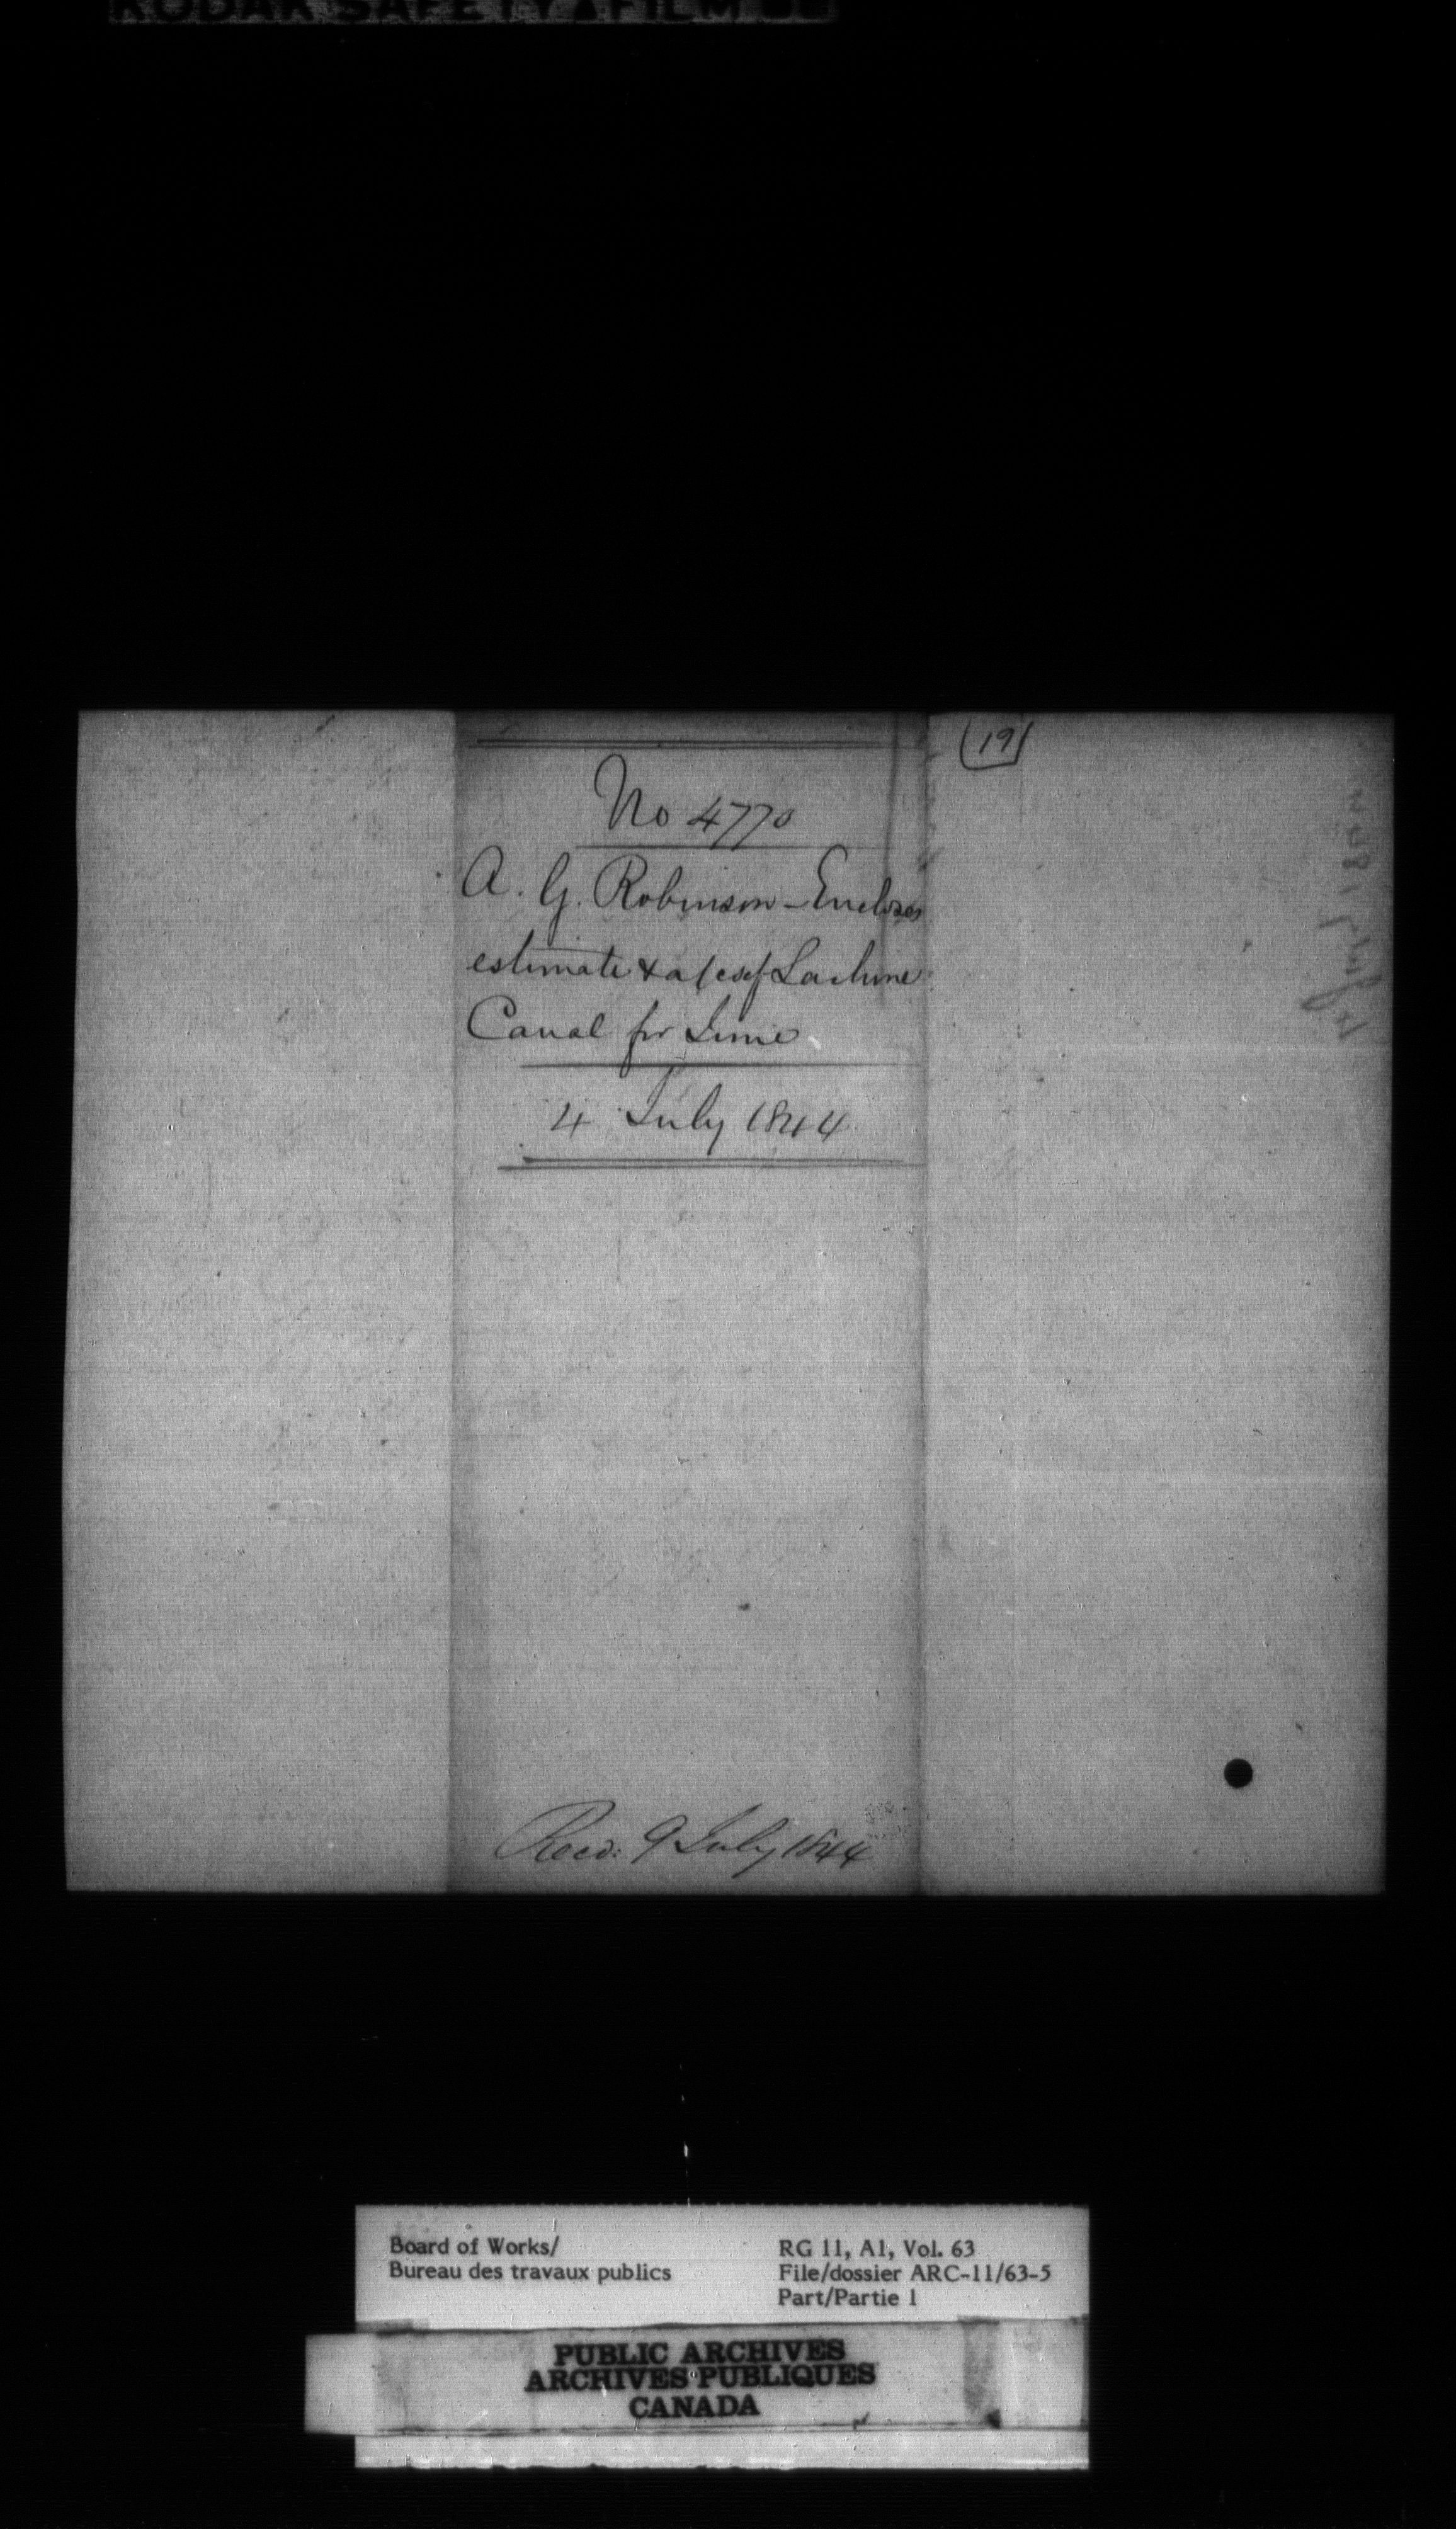 KODAK SAFETY FILM
(19)
No 4770
A. G. Robinson - Encloses
estimate & a/cs of Lachine
Canal for June
4 July 1844
Recd: 9 July 1844
Board of Works/
Bureau des travaux publics
RG 11, A1, Vol. 63
File/dossier ARC-11/63-5
Part/Partie 1
PUBLIC ARCHIVES
ARCHIVES PUBLIQUES
CANADA